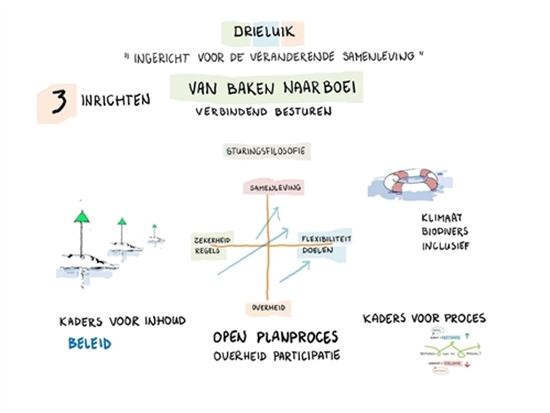 DRIELUIK
"INGERICHT VOOR DE VERANDERENDE SAMENLEVING"
3 INRICHTEN
VAN BAKEN NAAR BOEI
VERBINDEND BESTUREN
STURINGSFILOSOFIE
SAMENLEVING
ZEKERHEID
REGELS
FLEXIBILITEIT
DOELEN
OVERHEID
KLIMAAT
BIODIVERS
INCLUSIEF
KADERS VOOR INHOUD
BELEID
OPEN PLANPROCES
OVERHEID PARTICIPATIE
KADERS VOOR PROCES